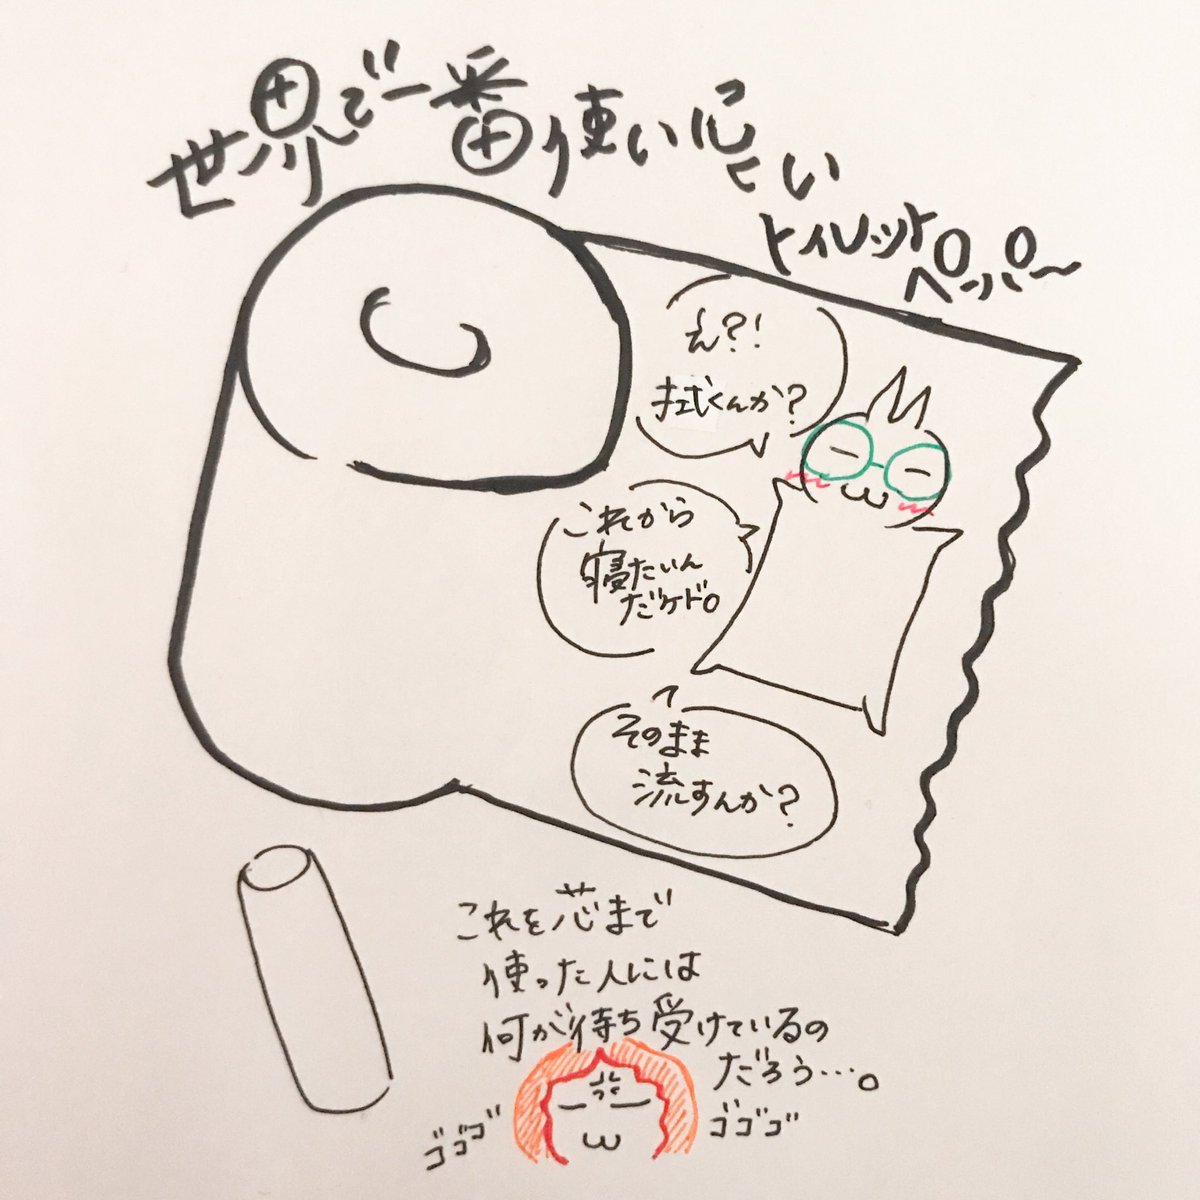 世界で一番使いにくい
トイレット
ペーパ〜
え?!
拭くんか?
これから
寝たいん
だケド。
そのまま
流すんか?
これを芯まで
使った人には
何が待ち受けているの
だろう…。
ゴゴゴ
ゴゴゴ